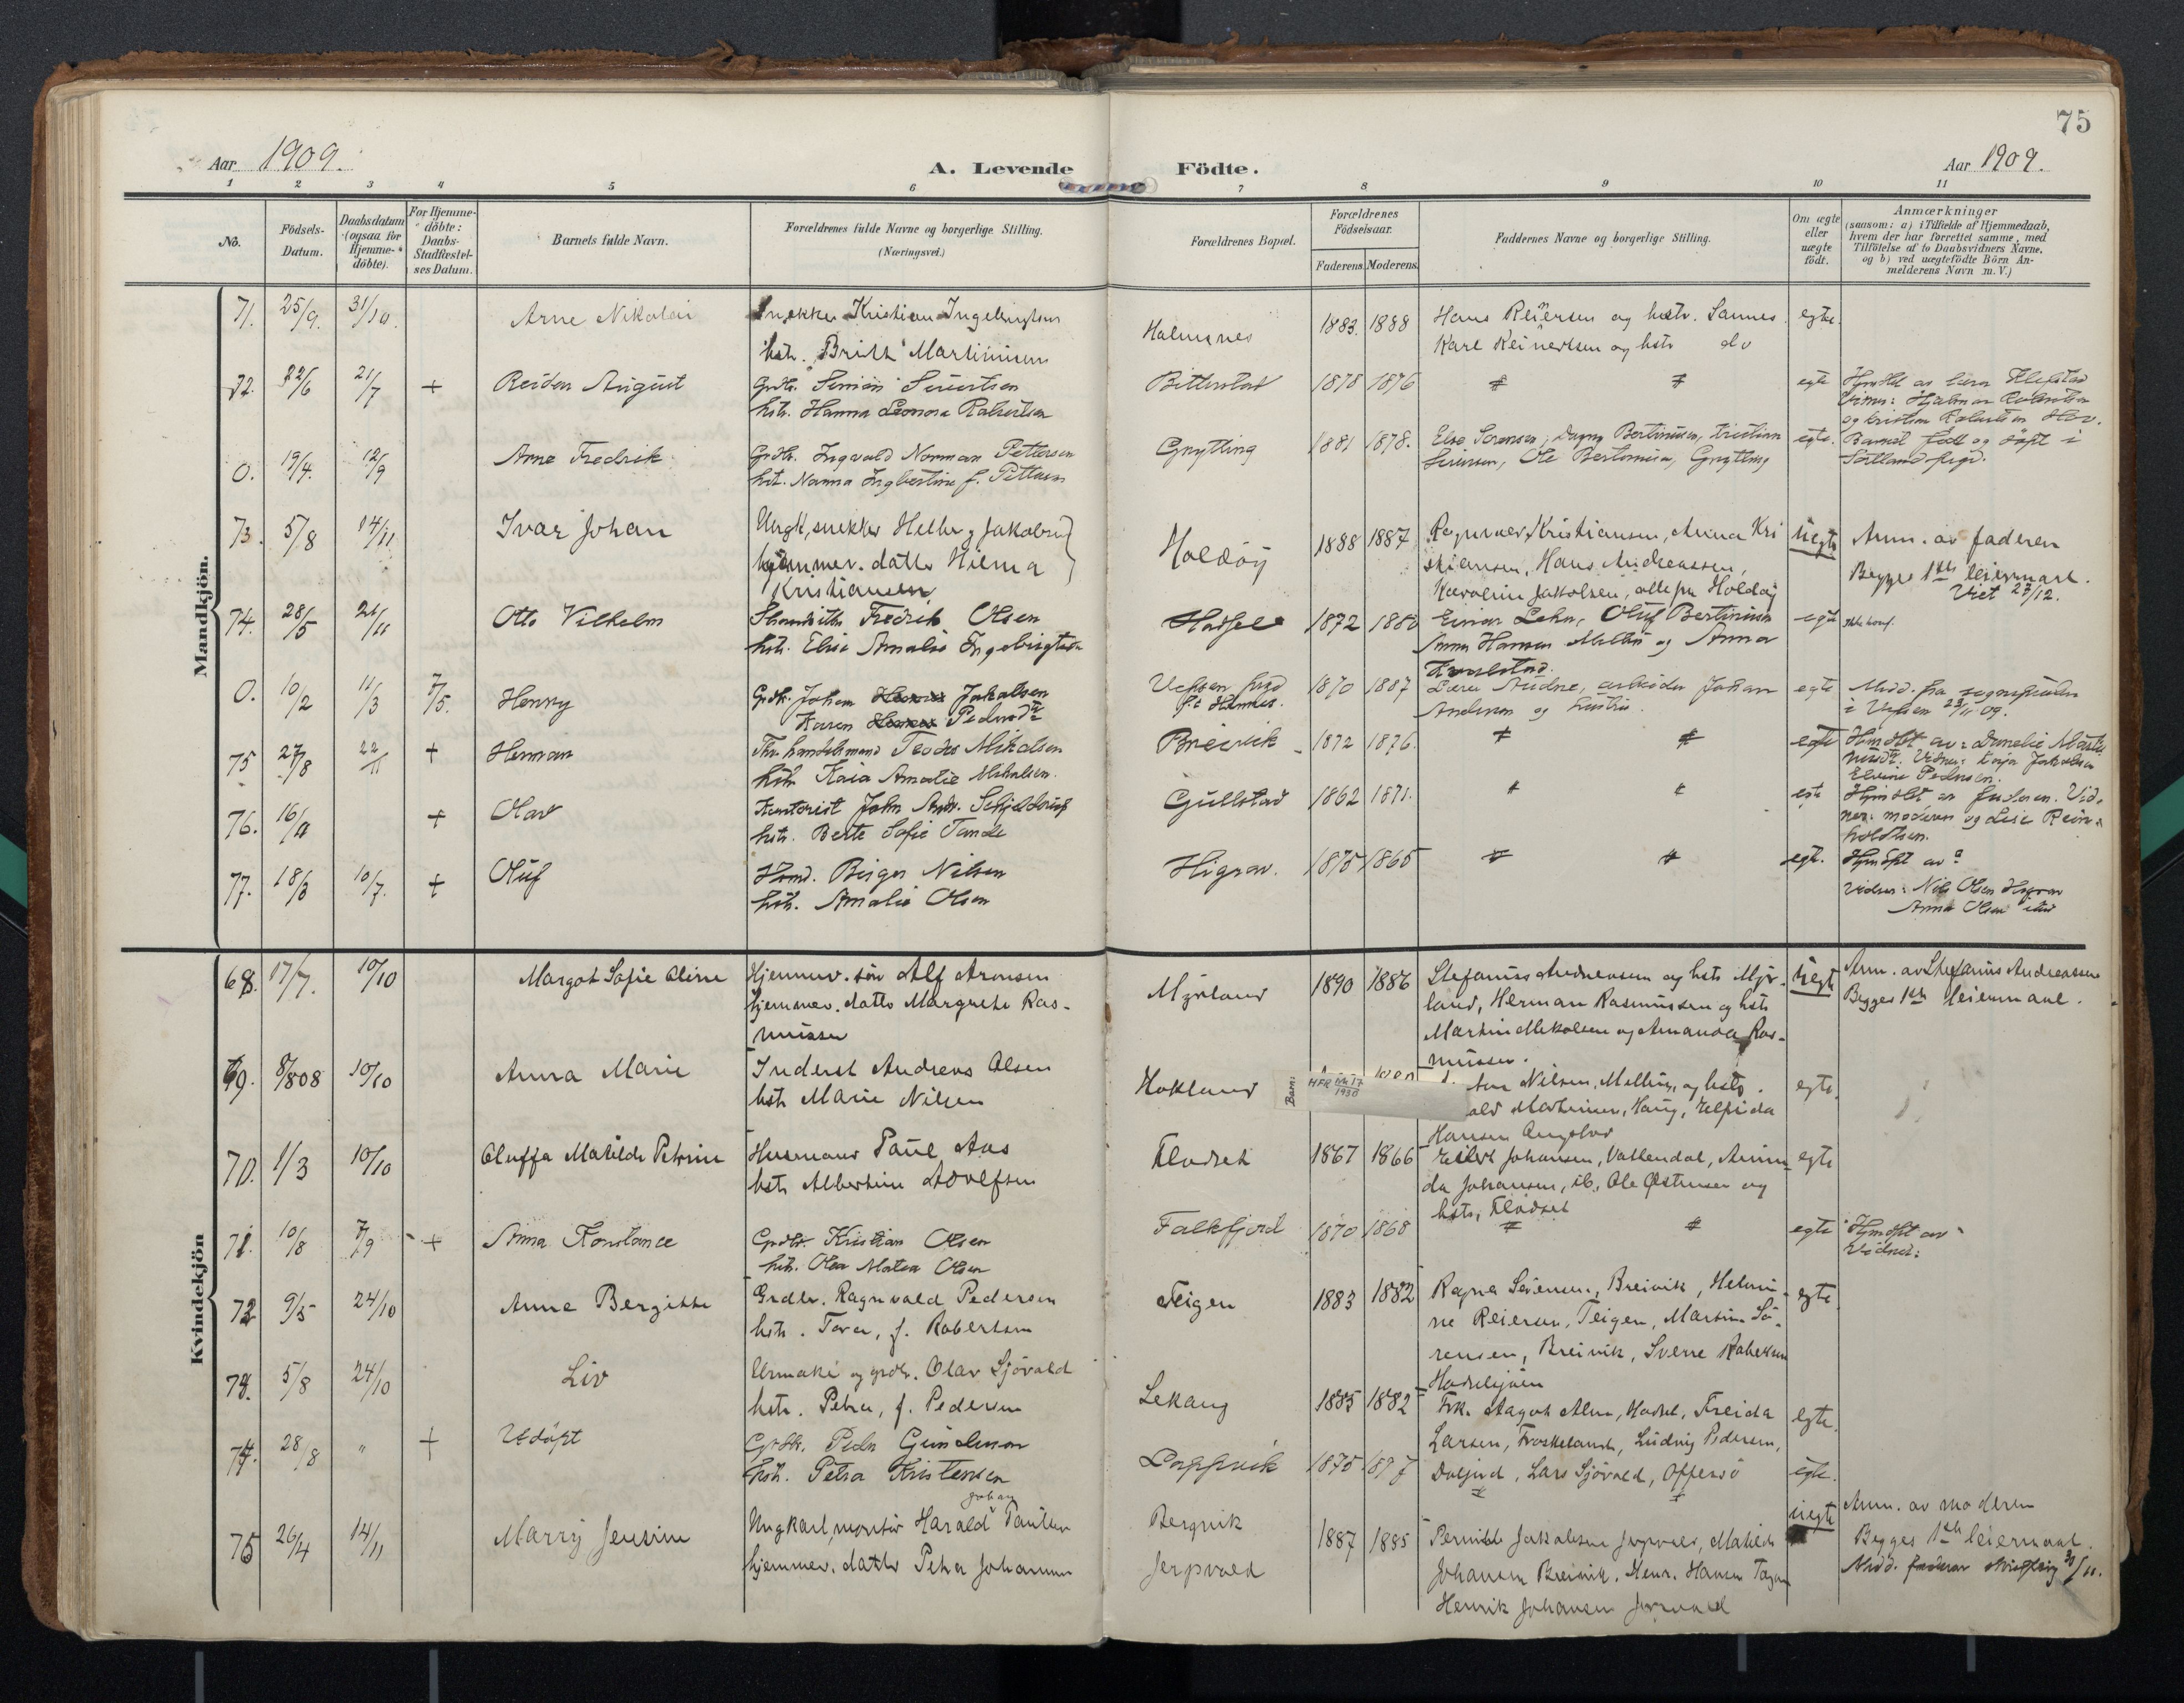 75
Aar 1909.
A. Levende Födte.
Aar 1909.
1 2 3 4 5 6 7 8 9 10 11
No.
Födsels-
Datum.
Daabsdatum
(ogsaa for
Hjemme-
döbte).
For Hjemme-
döbte:
Daabs-
Stadfæstel-
ses Datum.
Barnets fulde Navn.
Forældrenes fulde Navne og borgerlige Stilling.
(Næringsvei.)
Forældrenes Bopæl.
Forældrenes
Födselsaar.
Faderens. Moderens.
Faddernes Navne og borgerlige Stilling.
Om ægte
eller
uægte
födt.
Anmærkninger
(saasom: a) i Tilfælde af Hjemmedaab,
hvem der har forrettet samme, med
Tilföielse af to Daabsvidners Navne,
og b) ved uægtefödte Börn An-
melderens Navn m. V.)
Mandkjön.
71. 25/9. 31/10. Arne Nikolai
Snekker Kristian Ingebrigtsen
hstr. Britt Martinisen
Holmsnes 1883. 1888
Hans Reiersen og hstr. Sannes
Karl Reinertsen og hstr do
egte.
72. 22/6 21/7 + Reidar August
Grdbr. Simon Sivertsen
hstr. Hanna Leonora Robertsen
Bitterstad 1878 1876 egte
Hjmdbt av lærer Klefstad
Vidner: Hjalmar Robertsen
og Kristian Robertsen
0. 19/4. 12/9 Arne Fredrik
Grdbr. Ingvald Norman Pettersen
hst. Nanna Ingbertine f. Pettersen
Grytting 1881 1878.
Else Sorensen, Dagny Bertinusen, Kristian
Sivensen, Ole Bertinusen, Grytting
egte.
Barnet född og döpt i
Sortland prgd.
73. 5/8 14/11 Ivar Johan
Ungk, snekker Helberg Jakobsen
hjemmev. datter Hilma
Kristiansen
Holdöy 1888 1887
Ragnvald Kristiansen, Anna Kri
stiansen, Hans Andreassen,
Karoline Jakobsen, alle fra Holdöy
uegte
Anm. av faderen
Begges 1ste leiermaal.
Viet 23/12.
74. 28/5 21/11 Otto Vilhelm
Strandsitter Fredrik Olsen
hstr. Elise Amalie Ingebrigtsen
Hadsel 1872 1880
Einar Lehn, Oluf Bertinusen
Anna Hansen Melbu og Anna
egte
0. 10/2 11/3 7/5. Henry
Grdbr. Johan Jakobsen
Karen Pedersdtr
Vefsen prgd 1870 1887
Lærer Aridne, arbeider Johan
Andersen og hustru.
egte
Medd. fra sognepresten
i Vefsen 23/11 09.
75 27/8 22/11 + Herman
Fhv. handelsmand Teodor Mikalsen
hstr. Kaia Amalie Mikalsen.
Breivik 1872 1876. egte
Hjmdbt av: Dinalie Marti
nusdtr. Vidner: Kaja Jakobsen
Elvine Pedersen.
76. 16/9 + Olav
Kontorist John Andr. Schjelderup
hstr. Berte Sofie Tande
Gullstad 1862 1871. egte
Hjmdbt av faderen. Vid-
ner: moderen og Lise Rein-
holdtsen.
77. 18/3 10/7. + Oluf
Hsmd. Birger Nilsen
hstr. Amalie Olsen
Higrav. 1875 1865 egte.
Hjmdbt av?
Vidner: Nils Olsen Higrav
Anna Olsen
Kvindekjön
68. 17/7. 10/10 Margot Sofie Aline
Hjemmev. sön Alf Aronsen
hjemmev. datter Margrete Ras-
mussen
Myrland 1890 1886
Stefanus Andreassen og hstr Myr-
land, Herman Rasmussen og hstr
Martin Mikalsen og Amanda Ras-
mussen.
uegte
Anm. av Stefanus Andreassen
Begges 1ste leiermaal.
69. 8/8 08 10/10 Anna Marie
Inderst Andreas Olsen
hstr Marie Nilsen
Hokland
Barn:
HFR 1930
Nilsen, Melbu, og hstr.
Martinsen, Haug, Elfrida
Hansen
egte.
70. 1/3 10/10 Oluffa Matilde Petrine
Husmand Paul Aas
hstr Albertine Adolfsen
Flodset 1867 1866
Eilert Johansen, Vallendal, Amin
da Johansen, ib., Ole Østensen og
hstr, Flodset
egte
71. 10/8 7/9 + Anna Konstance
Grdbr. Kristian Olsen
hstr. Olea Matea Olsen
Falkfjord 1870 1868 egte
Hjmdbt av
Vidner:
72 9/5 24/10 Anna Bergitte
Grdbr. Ragnvald Pedersen
hstr. Tora, f. Robertsen
Teigen 1883 1882
Ragna Sörensen, Breivik, Helmi-
ne Reiersen, Teigen, Martin Sö-
rensen, Breivik, Sverre Robertsen
egte
73. 5/8 24/10 Liv
Urmaker og grdbr. Olav Sjövold
hstr. Petra, f. Pedersen
Lekang 1885 1882
Frk. Aagot Alm, Hadsel, Freida
Larsen, Froskeland, Ludvig Pedersen,
Lars Sjövold, Offersö
egte.
74. 28/8 " + Udöpt
Grdbr. Peder Gundersen
hstr. Petra Kristensen
Pappvik 1875 egte.
75 26/4 14/11 Marry Jensine
Ungkarl, montör Harald Johan Paulsen
hjemmev. datter Petra Johansen
Bergvik
Jerpvold
1887 1885
Pernille Jakobsen Jerpvold, Matilde
Johansen Breivik, Henr. Hansen
Henrik Johansen Jerpvold
uegte
Anm. av moderen
Begges 1ste leiermaal.